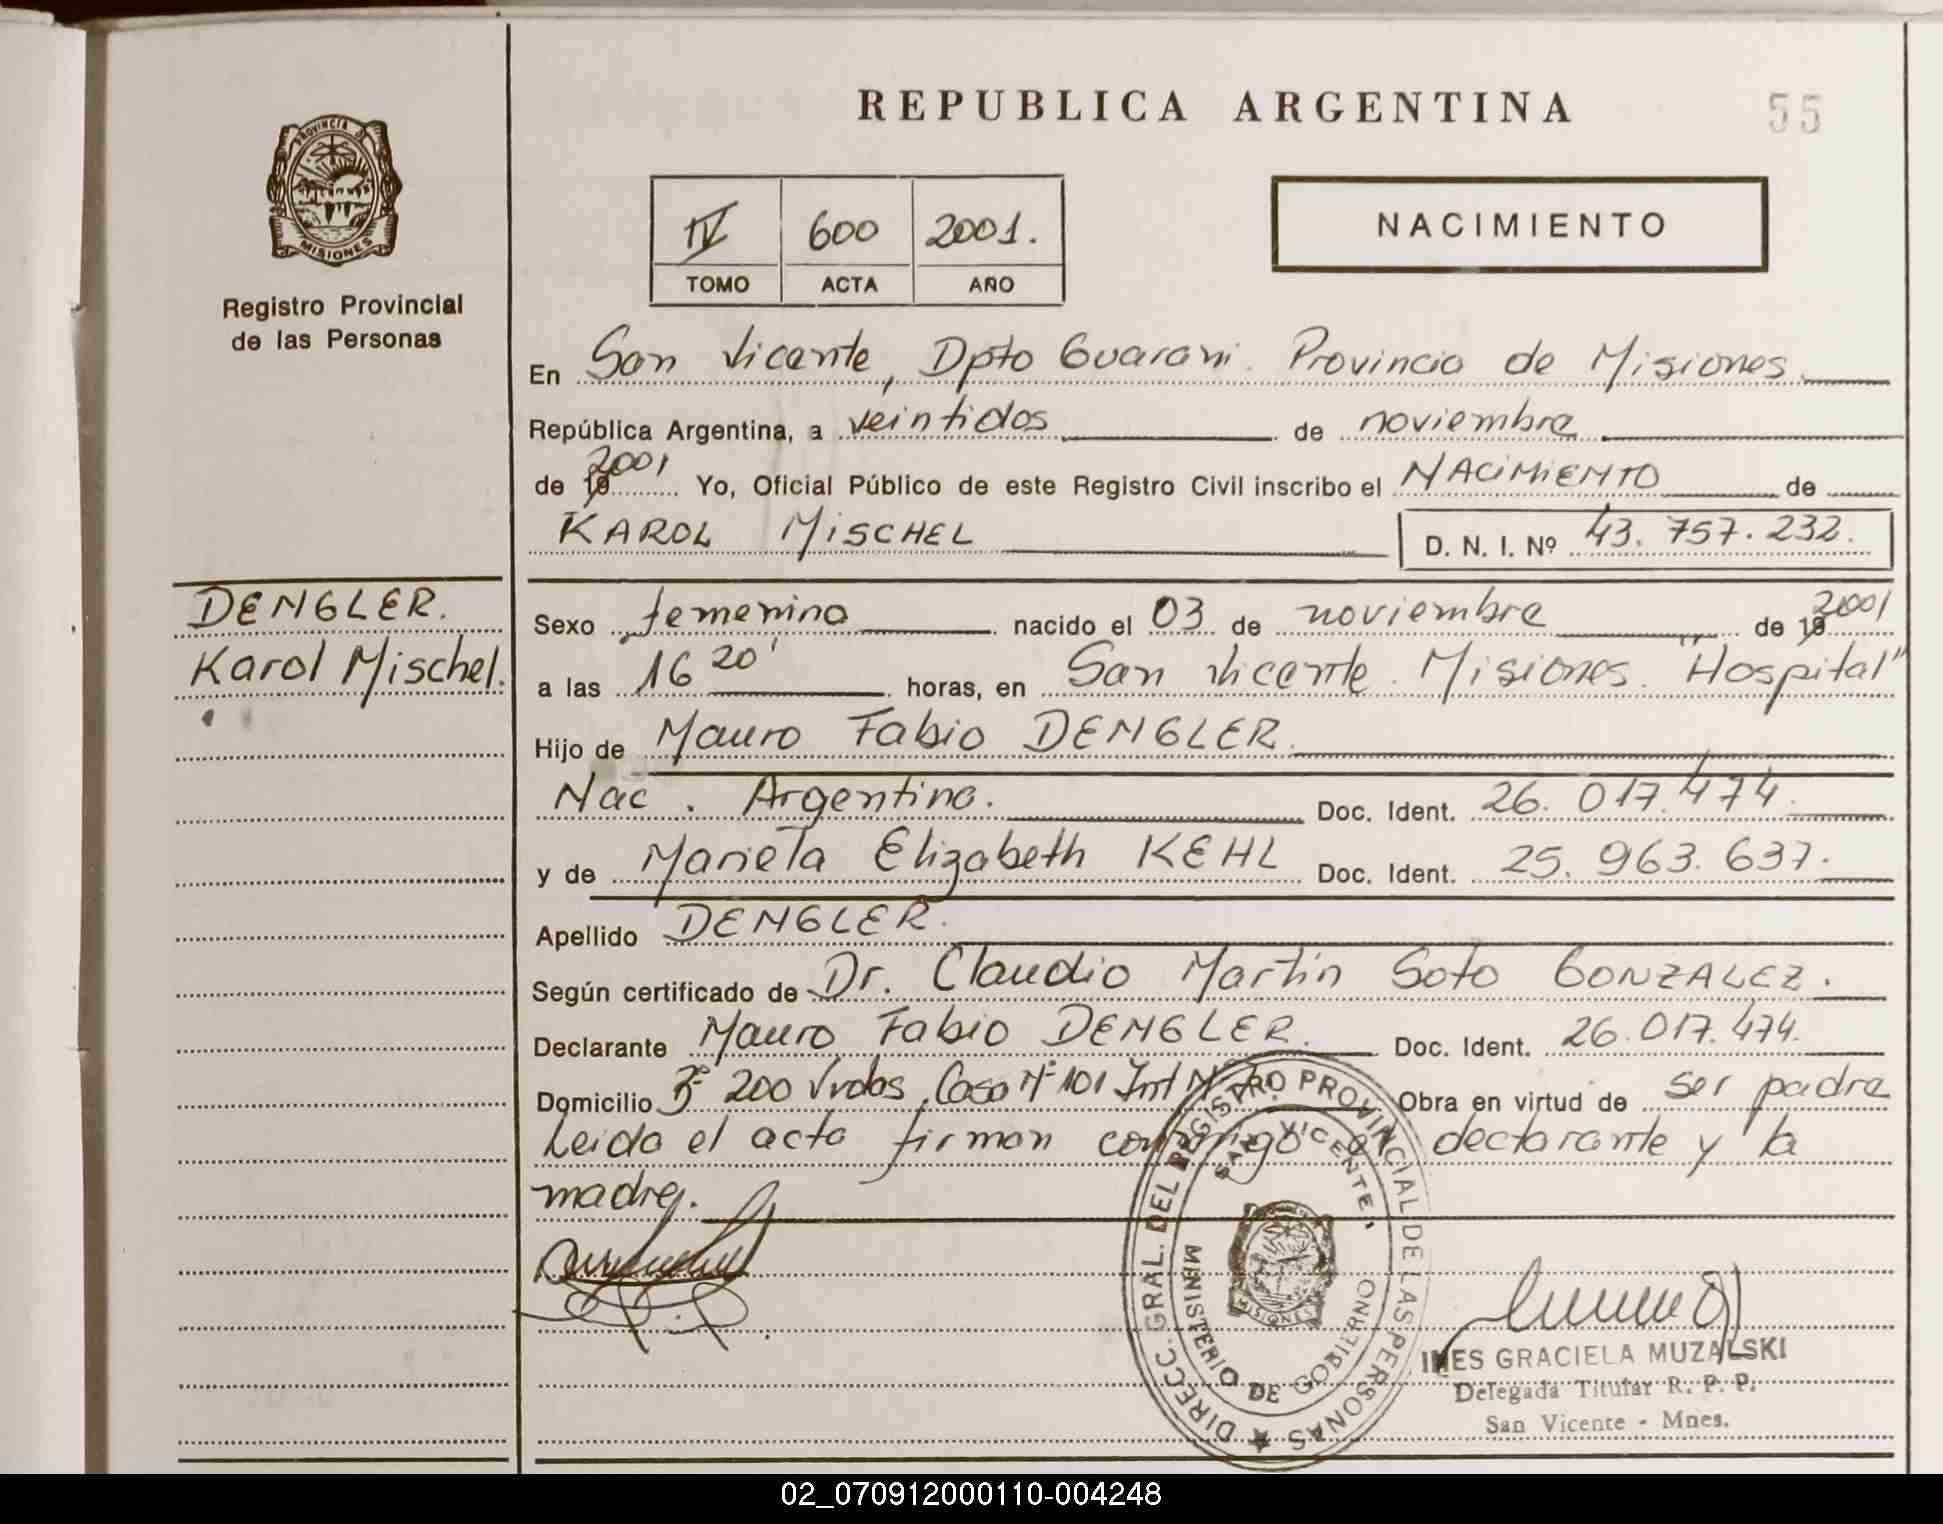 REPUBLICA ARGENTINA
55
PROVINCIA DE
MISIONES
Registro Provincial
de las Personas
IV 600 2001.
TOMO ACTA AÑO
NACIMIENTO
En San Vicente, Dpto Guarani. Provincia de Misiones.
República Argentina, a veintidos de noviembre
de 19 2001 Yo, Oficial Público de este Registro Civil inscribo el NACIMIENTO de
KAROL MISCHEL D. N. I. Nº 43. 757. 232.
DENGLER.
Karol Mischel.
Sexo femenino nacido el 03 de noviembre de 19 2001
a las 16 20' horas, en San Vicente. Misiones. "Hospital"
Hijo de Mauro Fabio DENGLER.
Nac. Argentina. Doc. Ident. 26. 017. 474.
y de Mariela Elizabeth KEHL Doc. Ident. 25. 963. 637.
Apellido DENGLER.
Según certificado de Dr. Claudio Martin Soto GONZALEZ.
Declarante Mauro Fabio DENGLER. Doc. Ident. 26. 017. 474.
Domicilio Bº 200 Vvdas, Casa Nº 101 Obra en virtud de ser padre
Leida el acta firman conmigo el declarante y la
madre.
DIRECC. GRAL. DEL REGISTRO PROVINCIAL DE LAS PERSONAS
SAN VICENTE,
MISIONES
MINISTERIO DE GOBIERNO
INES GRACIELA MUZALSKI
Delegada Titular R. P. P.
San Vicente - Mnes.
02_070912000110-004248